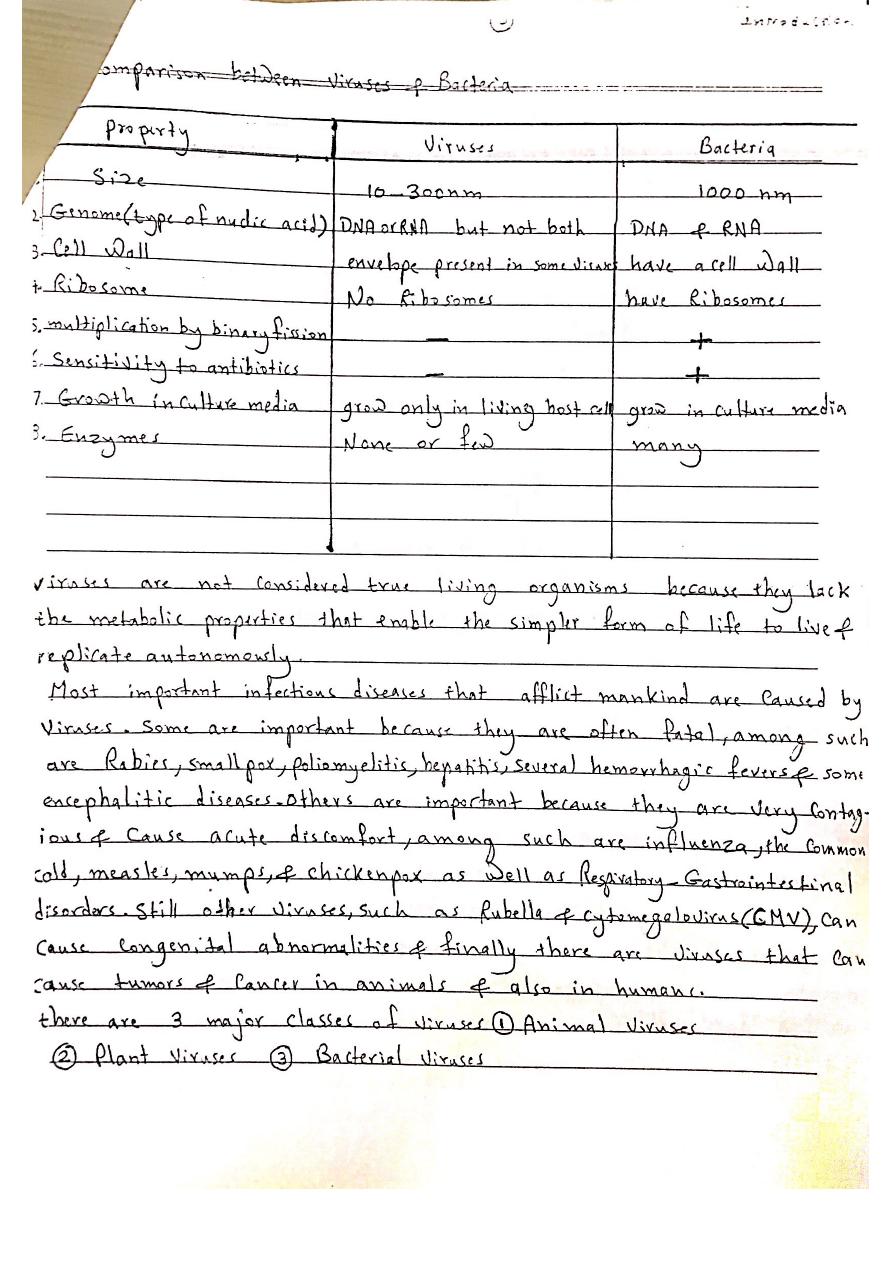 Introduction
omparison between Viruses & Bacteria
Property Viruses Bacteria
Size 10-300nm 1000 nm
2. Genome(type of nuclic acid) DNA or RNA but not both DNA & RNA
3. Cell Wall envelope present in some viruses have a cell wall
4. Ribosome No Ribosomes have Ribosomes
5. multiplication by binary fission - +
6. Sensitivity to antibiotics - +
7. Growth in culture media grow only in living host cell grow in culture media
8. Enzymes None or few many
viruses are not considered true living organisms because they lack
the metabolic properties that enable the simpler form of life to live &
replicate autonomously.
Most important infectious diseases that afflict mankind are caused by
viruses. Some are important because they are often fatal, among such
are Rabies, smallpox, poliomyelitis, hepatitis, several hemorrhagic fevers & some
encephalitic diseases. others are important because they are very contag-
ious & cause acute discomfort, among such are influenza, the common
cold, measles, mumps, & chickenpox as well as Respiratory-Gastrointestinal
disorders. Still other viruses, such as Rubella & cytomegalovirus(CMV), can
cause congenital abnormalities & finally there are viruses that can
cause tumors & cancer in animals & also in humans.
there are 3 major classes of viruses ① Animal viruses
② Plant viruses ③ Bacterial viruses